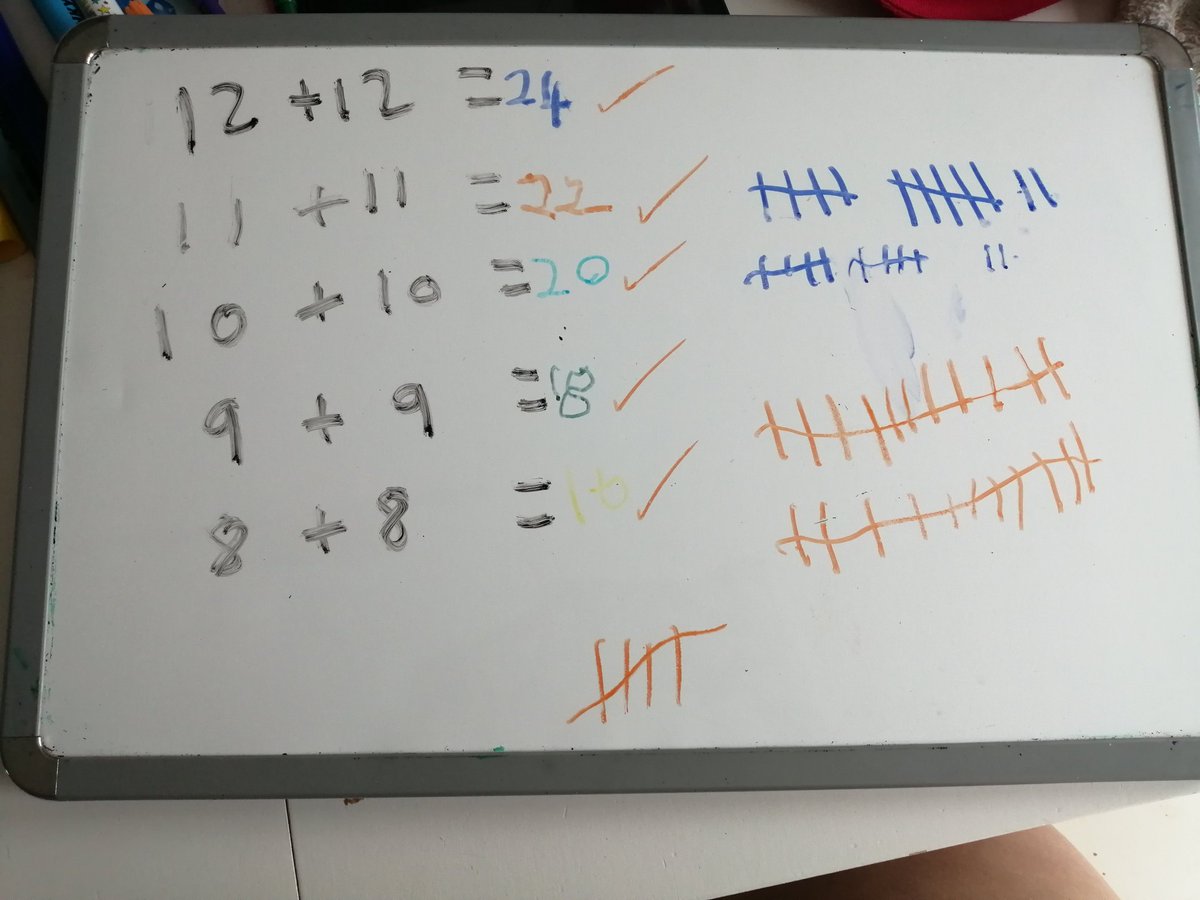 12 + 12 = 24 ✓
11 + 11 = 22 ✓
10 + 10 = 20 ✓
9 + 9 = 18 ✓
8 + 8 = 16 ✓